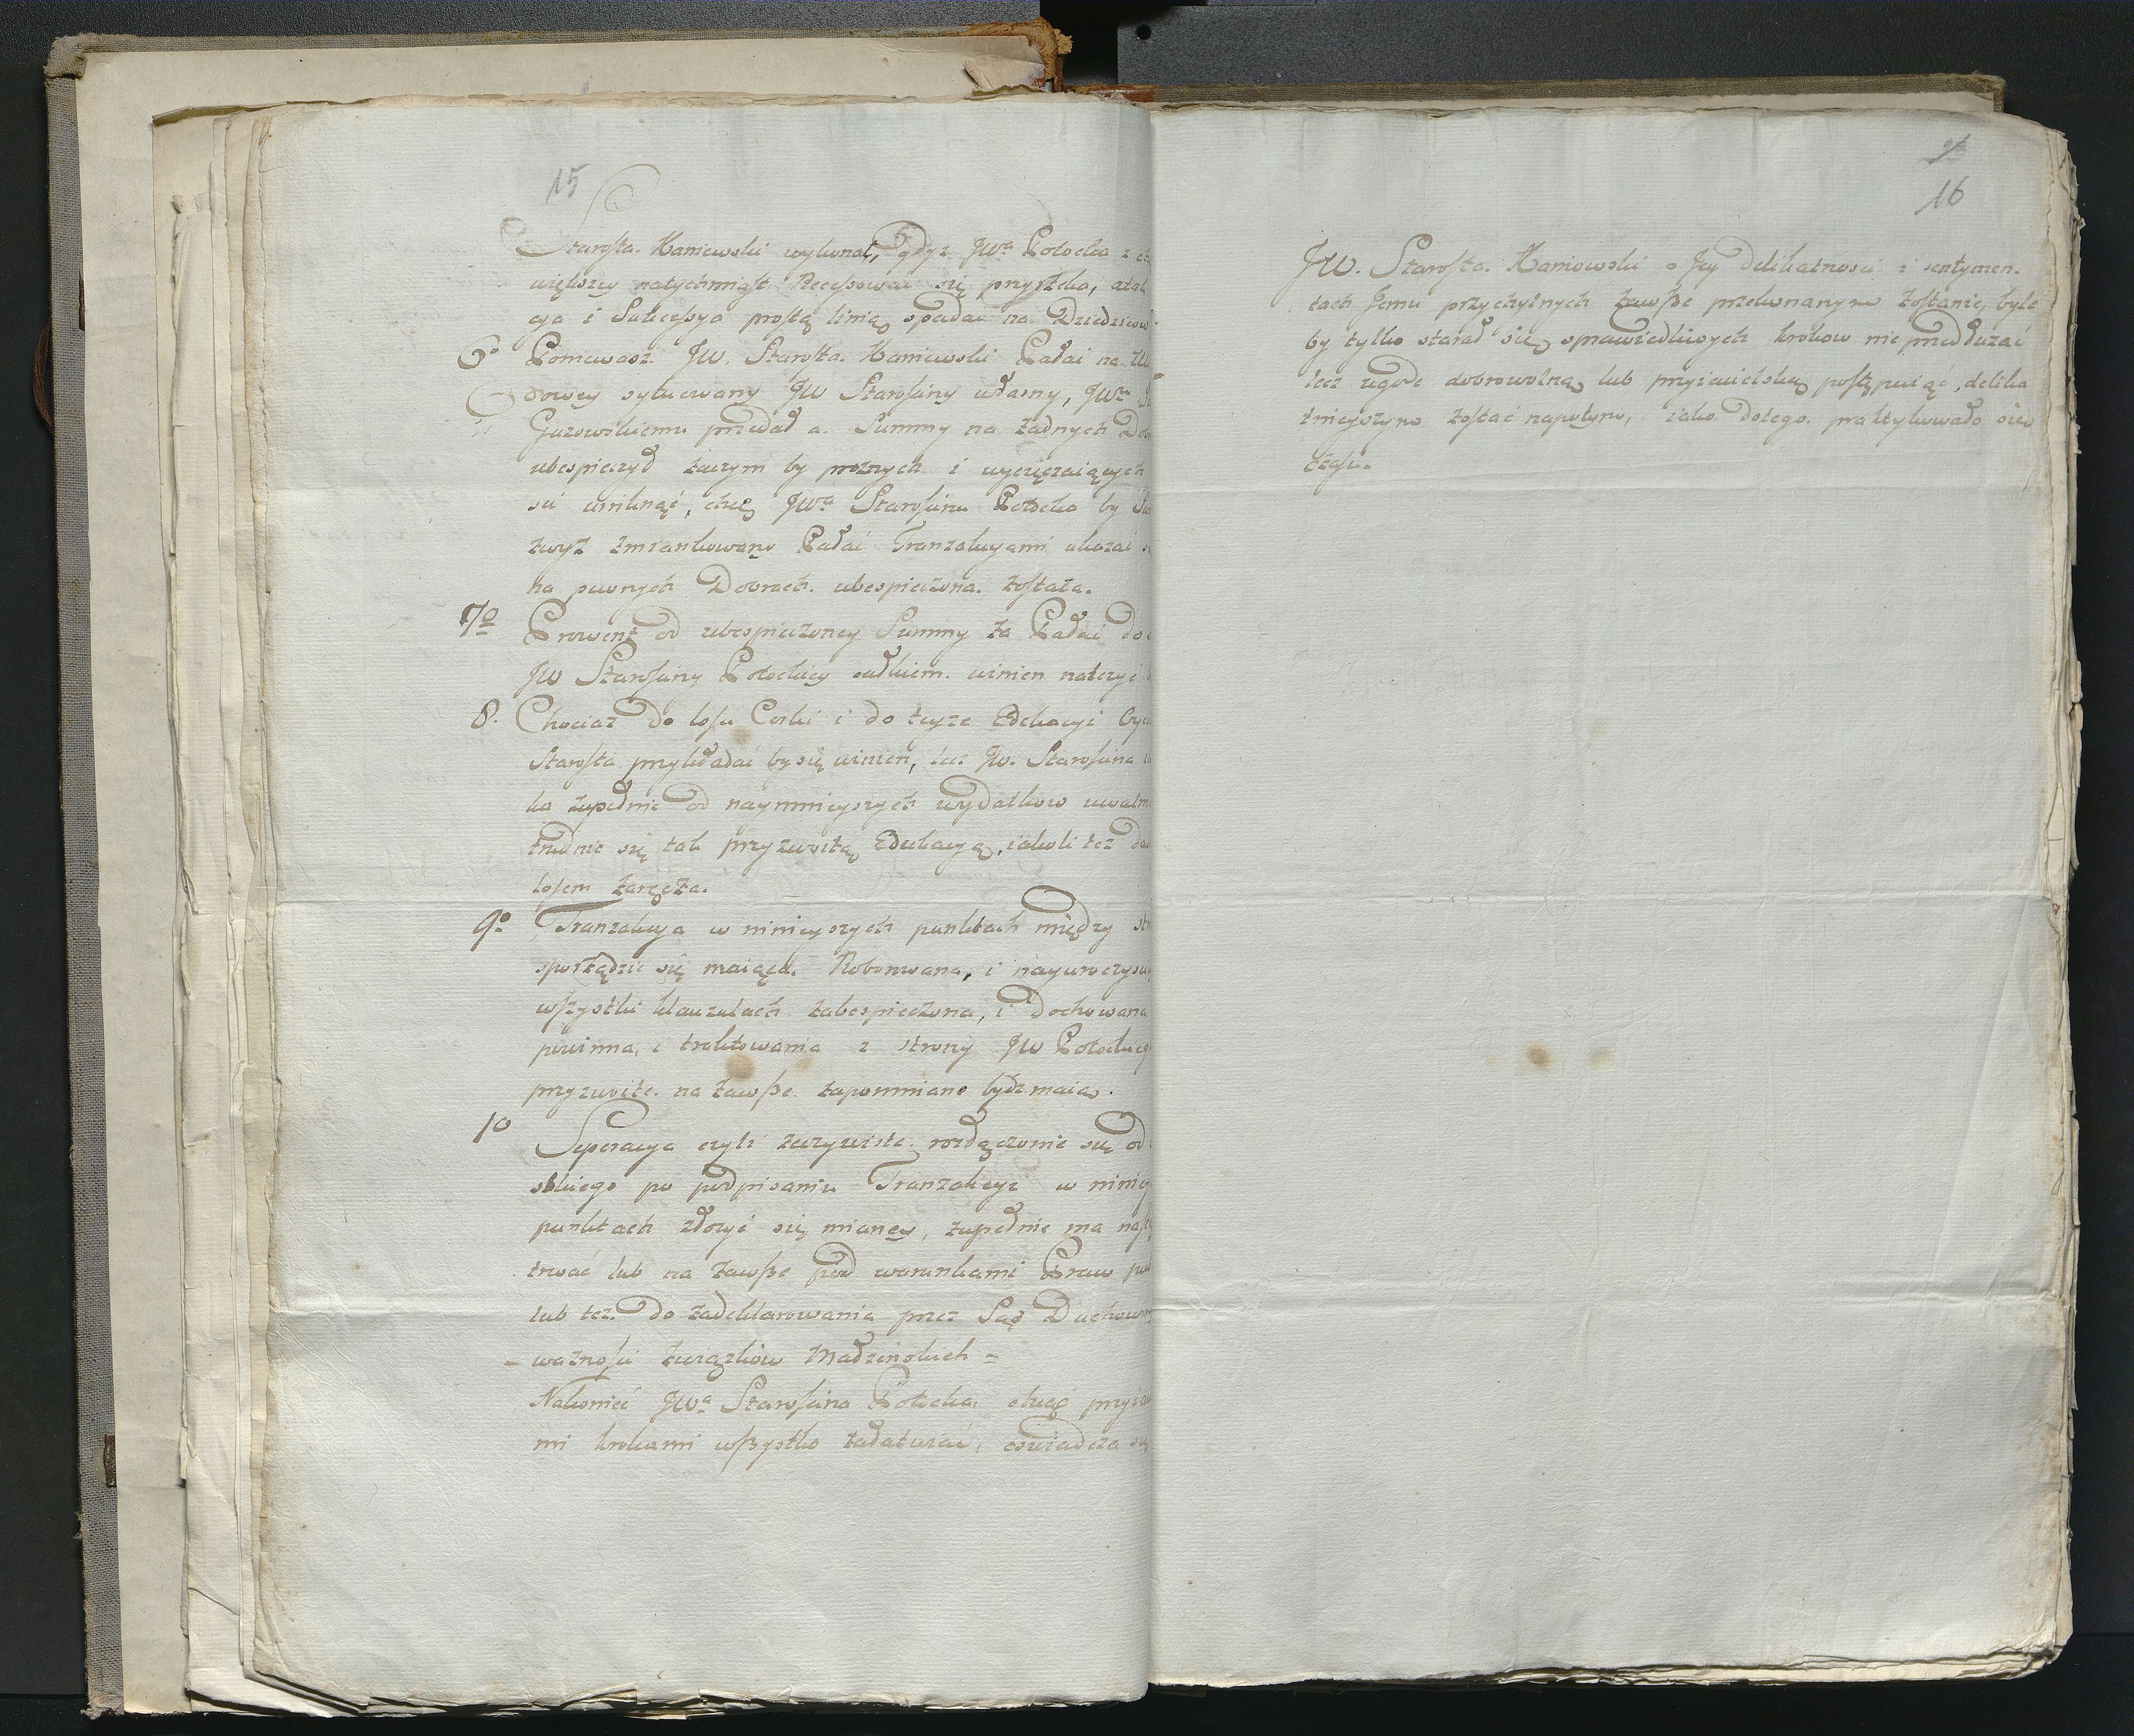 15
Starosta Kaniowski wykonał, gdyż JWa Potocka z
większey natychmiast Recessować się przyrzeka,
cya i Sukcessya prostą linią spadać na
6o Poniewasz JW. Starosta Kaniowski Pałac na
dowey sytuowany JW Starosciny własny, JWu
Guzowskiemu przedał a Summy na żadnych
ubespieczył zaczym by proznych i uycięzaiących
sci uniknąć, chce JWa Starościna Potocka by
zwyż zmiankowany Pałac Tranzakcyami okazać
na pewnych Dobrach ubespieczona została.
7o Prowent od ubespieczoney Summy za Pałac do
JW Starosciny Potockiey całkiem winien należyć
8. Chociaż do losu Corki i do teyże Edukacyi
Starosta przykładać by się winien, lecz JW. Starościna
ka zupełnie od naymnieyszych wydatkow
trudnić się tak przyzwoitą Edukacyą, iakoli też
losem zaręcza.
9o Tranzakcya w ninieyszych punktach między
sporządzić się maiąca Roborowana, i
wszystkie klauzulach zabespieczona, i dochowana
powinna, i traktowania z strony JW
przyzwoite na zawsze zapomniane bydz maią.
10 Seperacya czyli rzeczywiste rozłączenie się od
skiego po podpisaniu Tranzakcyi w
punktach złożyć się mianey, zupełnie ma
trwać lub na zawsze pod warunkami Praw
lub też do zadeklarowania przez Sąd
ważnosci związków Małżeńskich =
Nakoniec JWa Starościna Potocka, chcąc
mi krokami wszystko załatwiać, oswiadcza się
16
JW. Starosta Kaniowski o Jey delikatnosci i sentymen-
tach Jemu przychylnych zawsze przekonanym zostanie, byle
by tylko starał się sprawiedliwych krokow nie przedłużać
lecz ugode dobrowolną lub przyiacielską postępuiąc, delika
tnieyszym zostać napotym, iako dotego praktykowało się
czasu.